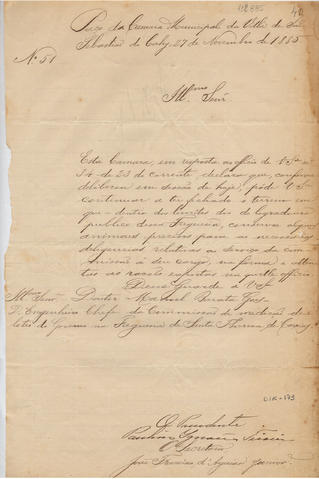 112885
42
Paço da Camara Municipal da Villa de São
Sebastião do Cahy, 27 de Novembro de 1885
Nº 51
Illmo. Senr.
Esta Camara, em resposta ao officio de V. Sª nº
54 de 23 do corrente, declara que, conforme
deliberou em sessão de hoje, póde V. Sª
continuar a ter fechado o terreno em
que dentro dos limites do logradouro
publico dessa Freguezia, conserva alguns
animaes precisos para as necessarias
diligencias relativas ao serviço da com-
missão á seu cargo, na forma e atten-
tas as razões expostas em officio.
Deus Guarde a V. Sª
Illmo. Senr. Doutor Manoel
D. Engenheiro Chefe da Commissão de medição de
lotes do Governo na Freguezia de Santa Thereza de Caxias
DIR-173
O Presidente
Paulino Ignacio Teixeira
O Secretario
José Francisco d'Aguiar